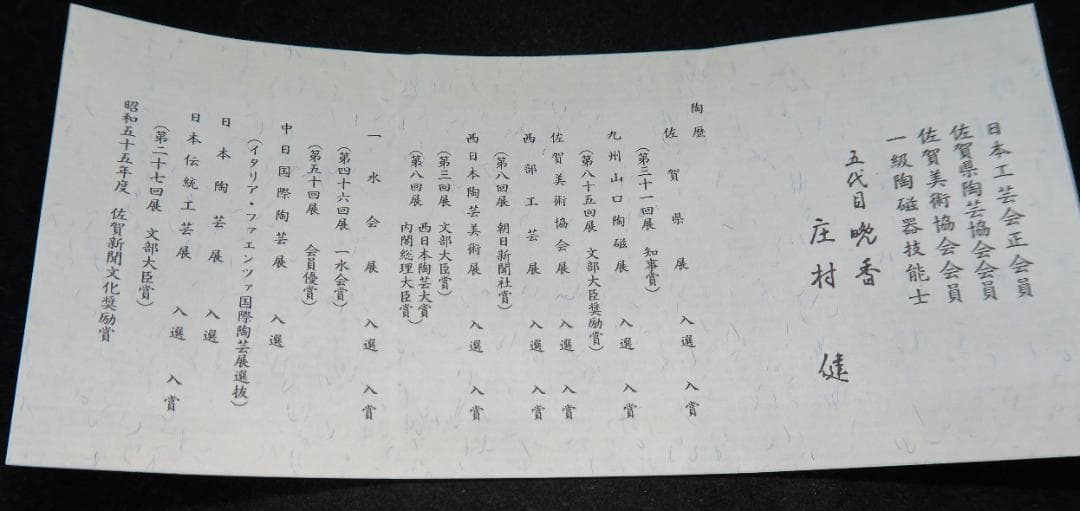 日本工芸会正会員
佐賀県陶芸協会会員
佐賀美術協会会員
一級陶磁器技能士
五代目晩香
庄村 健
陶歴
佐賀県展 入選 入賞
(第三十一回展 知事賞)
九州山口陶磁展 入選 入賞
(第八十五回展 文部大臣奨励賞)
佐賀美術協会展 入選 入賞
西部工芸展 入選 入賞
(第八回展 朝日新聞社賞)
西日本陶芸美術展 入選 入賞
(第三回展 文部大臣賞)
西日本陶芸大賞
(第八回展 内閣総理大臣賞)
一水会展 入選 入賞
(第四十六回展 一水会賞)
(第五十回展 会員優賞)
中日国際陶芸展 入選
(イタリア・ファエンツァ国際陶芸展選抜)
日本陶芸展 入選
日本伝統工芸展 入選 入賞
(第二十七回展 文部大臣賞)
昭和五十五年度 佐賀新聞文化奨励賞